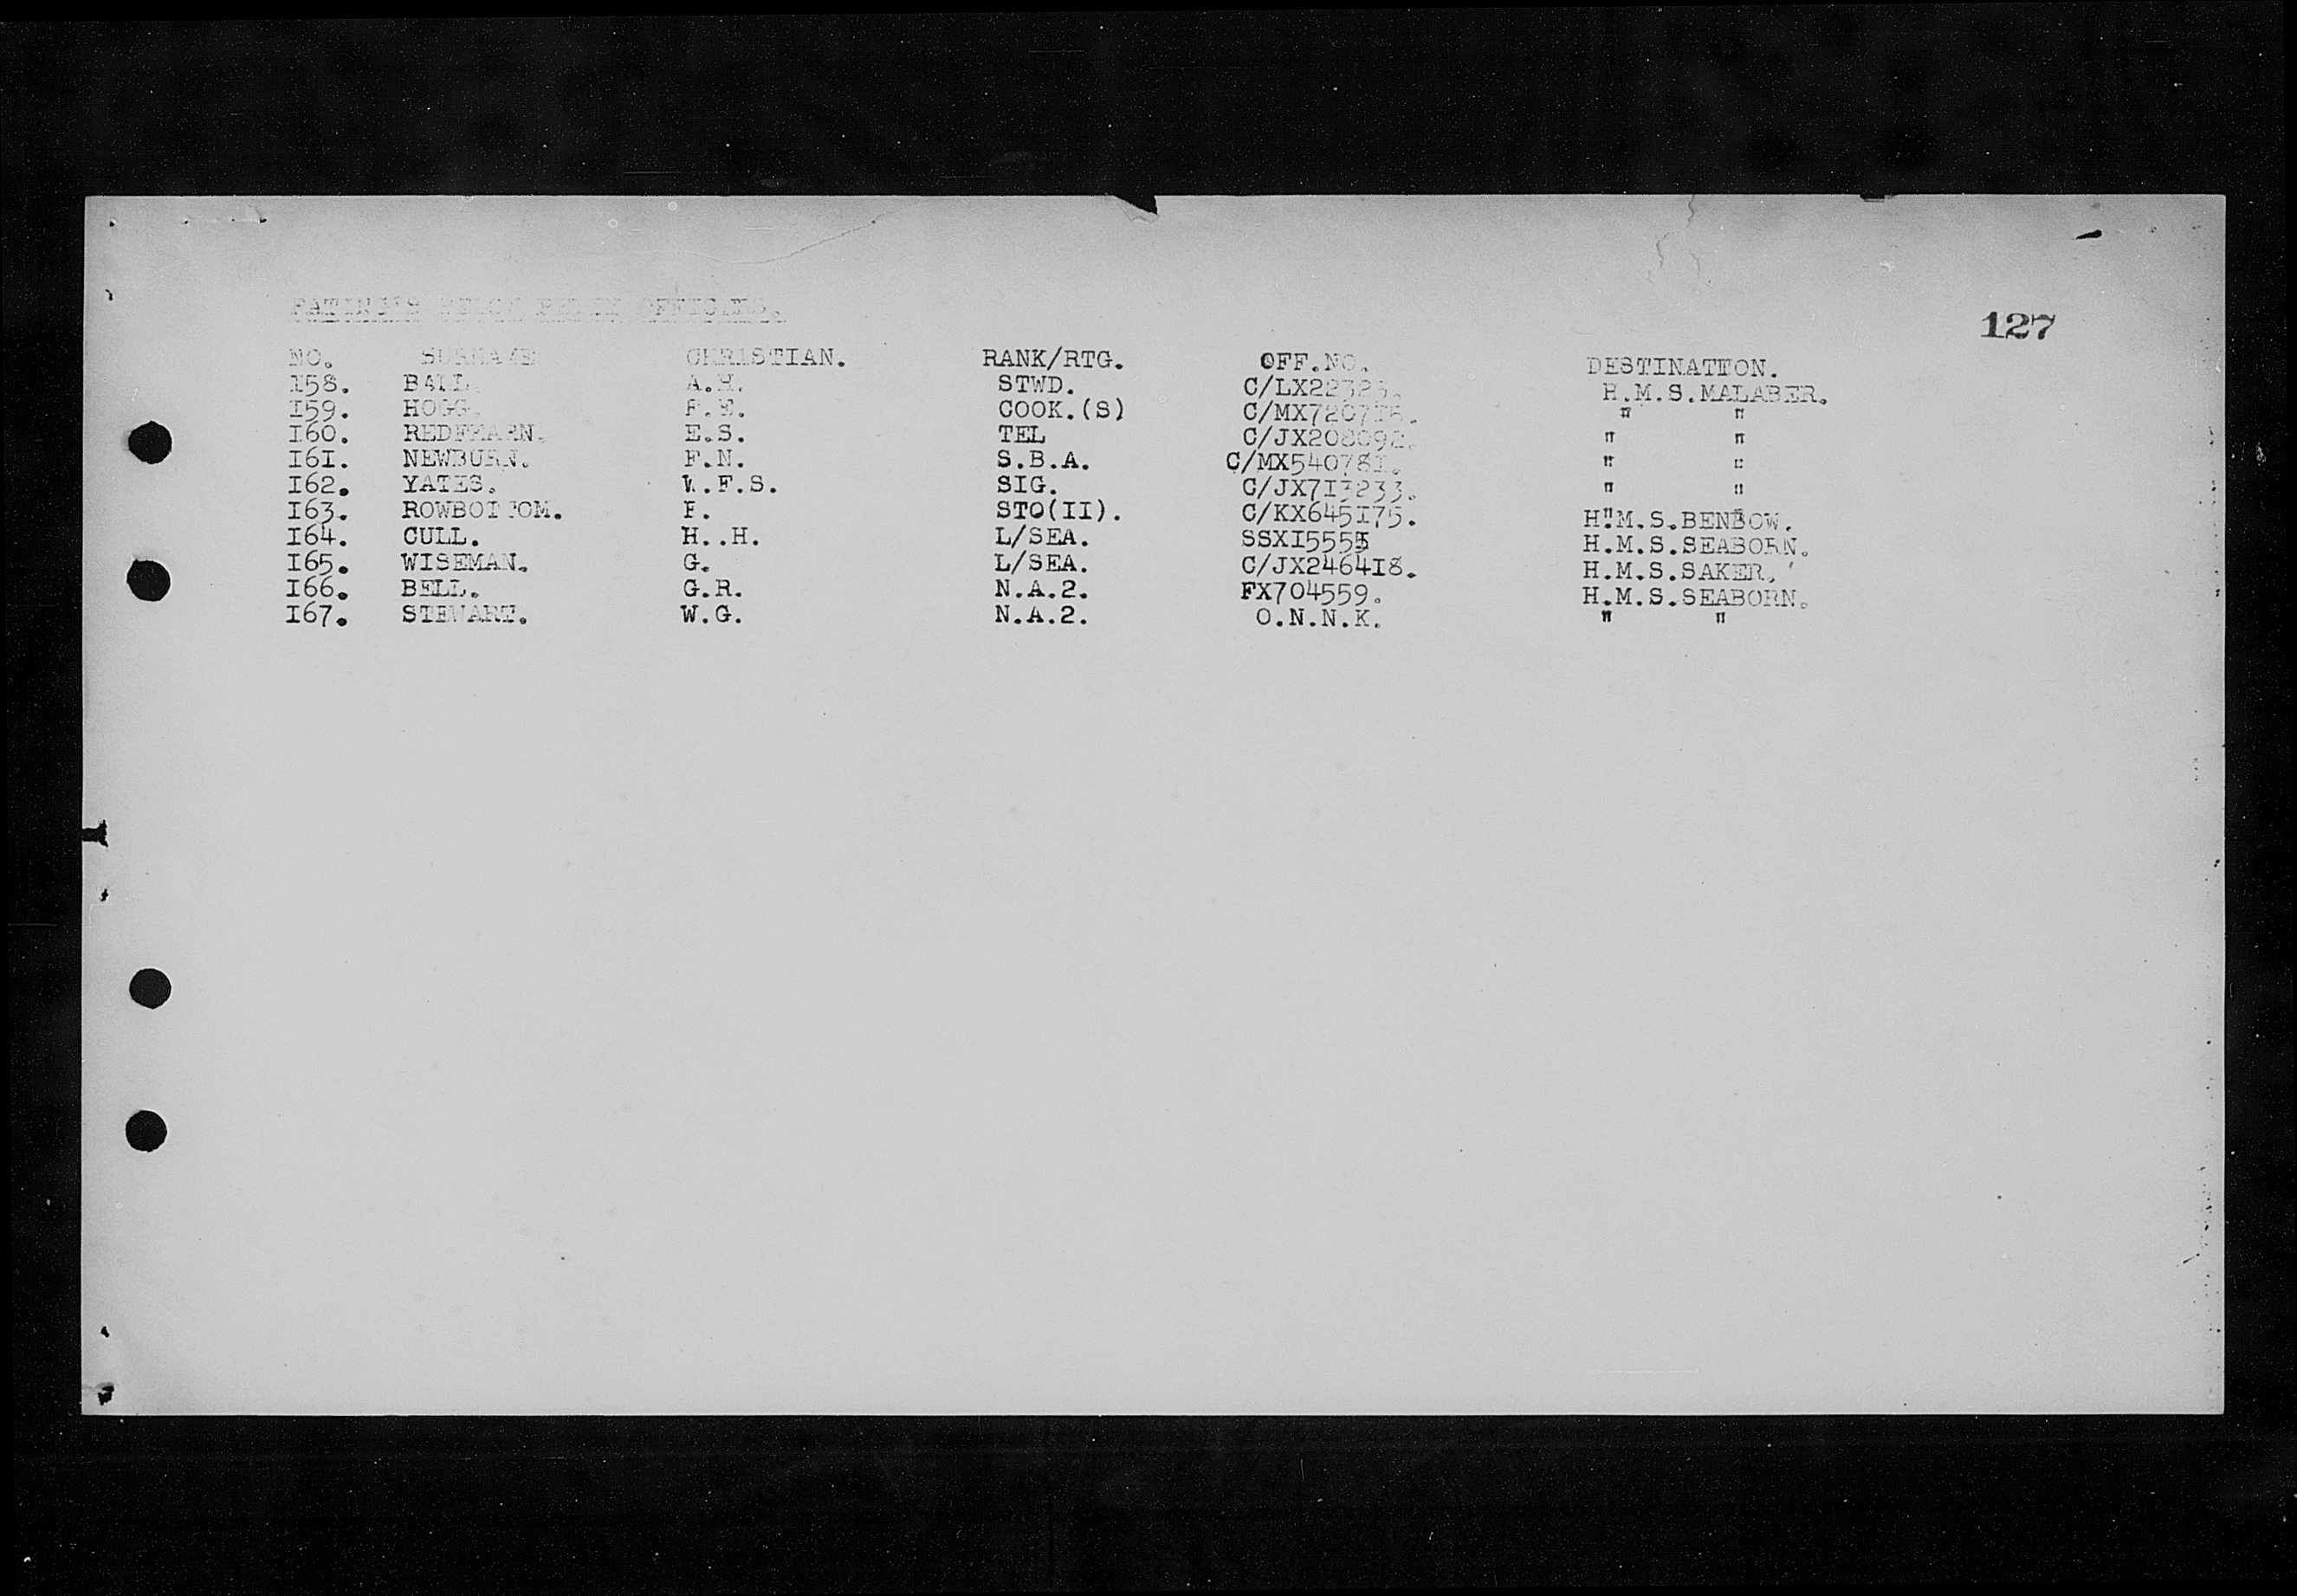 127
RATING'S BELOW PETTY OFFICERS.
NO. SURNAME CHRISTIAN. RANK/RTG. OFF.NO. DESTINATION.
I58. BALL. A.H. STWD. H.M.S.MALABER.
I59. HOGG. COOK.(S) " "
I60. REDFEARN. E.S. TEL C/JX208092. " "
I6I. NEWBURN. F.N. S.B.A. C/MX54078I. " "
I62. YATES. W.F.S. SIG. C/JX7I3233. " "
I63. ROWBOTTOM. STO(II). C/KX645I75. H.M.S.BENBOW.
I64. CULL. H..H. L/SEA. H.M.S.SEABORN.
I65. WISEMAN. G. L/SEA. C/JX2464I8. H.M.S.SAKER.
I66. BELL. G.R. N.A.2. FX704559. H.M.S.SEABORN.
I67. STEWART. W.G. N.A.2. O.N.N.K. " "